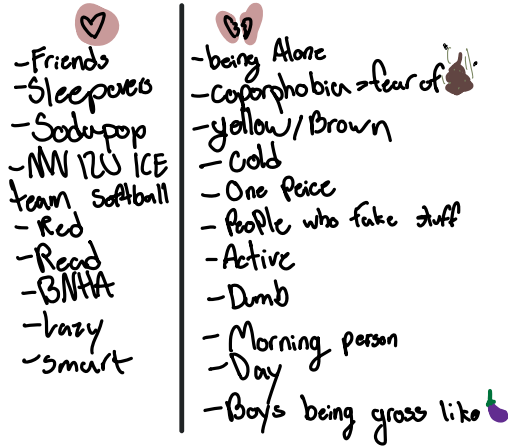 -Friends
-Sleepovers
-Sodapop
-NW 12U ICE
team softball
-Red
-Read
-BNHA
-Lazy
-smart
-being Alone
-coporphobia =fear of
-yellow/Brown
-Cold
-One Peice
-People who fake stuff
-Active
-Dumb
-Morning person
-Day
-Boys being gross like